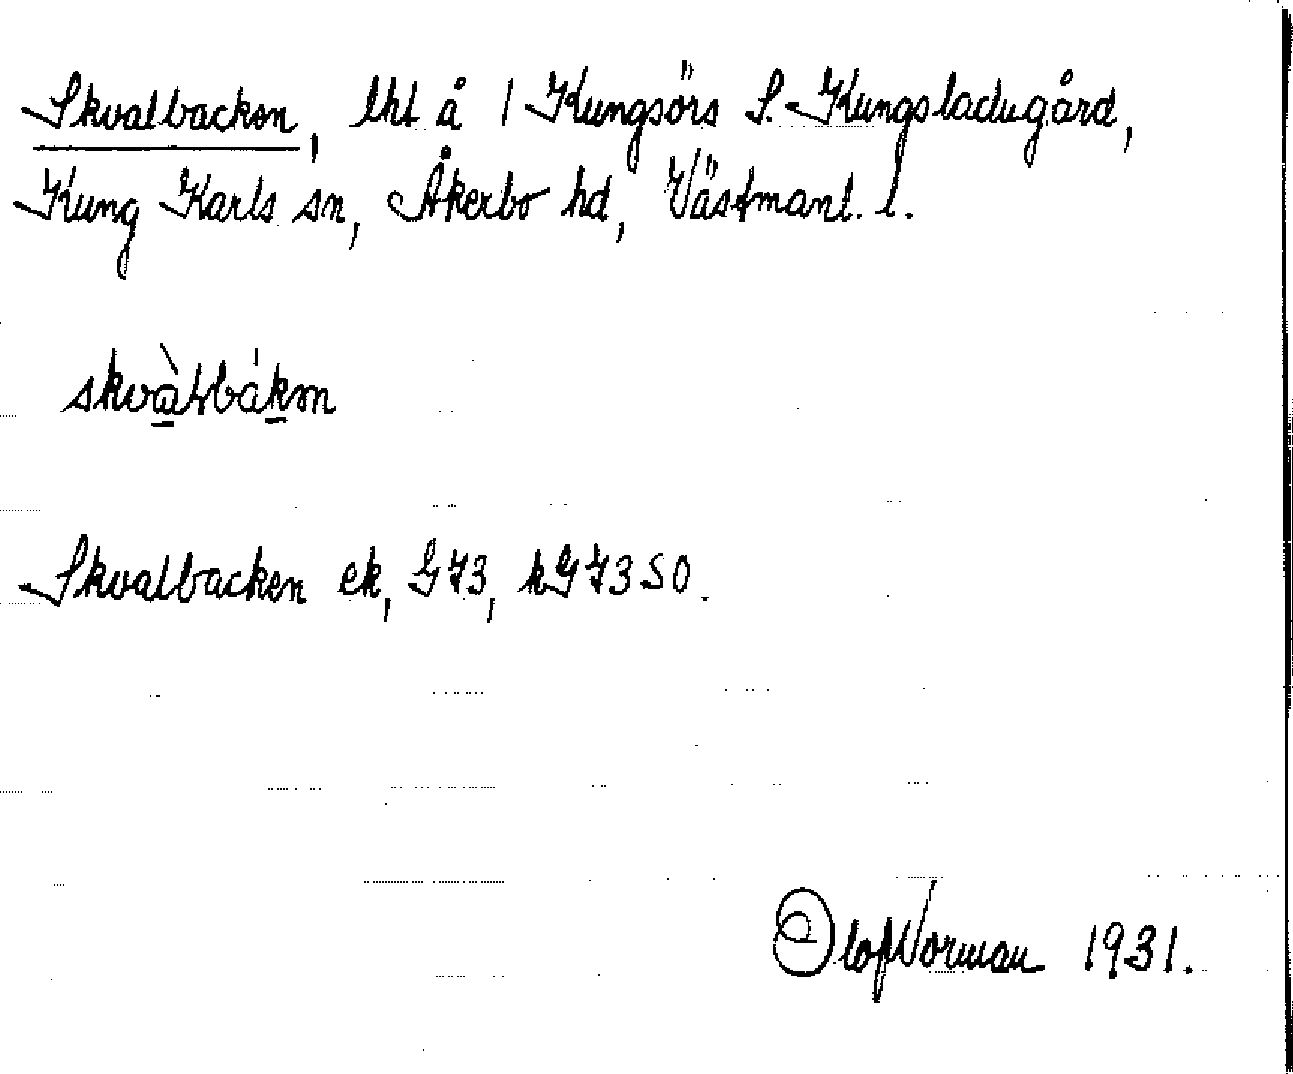 Skvalbacken, lht å 1 Kungsörs S. Kungsladugård,
Kung Karls sn, Åkerbo hd, Västmanl. l.
Skvalbacken ek, G73, kG73SO.
Olof Norman 1931.